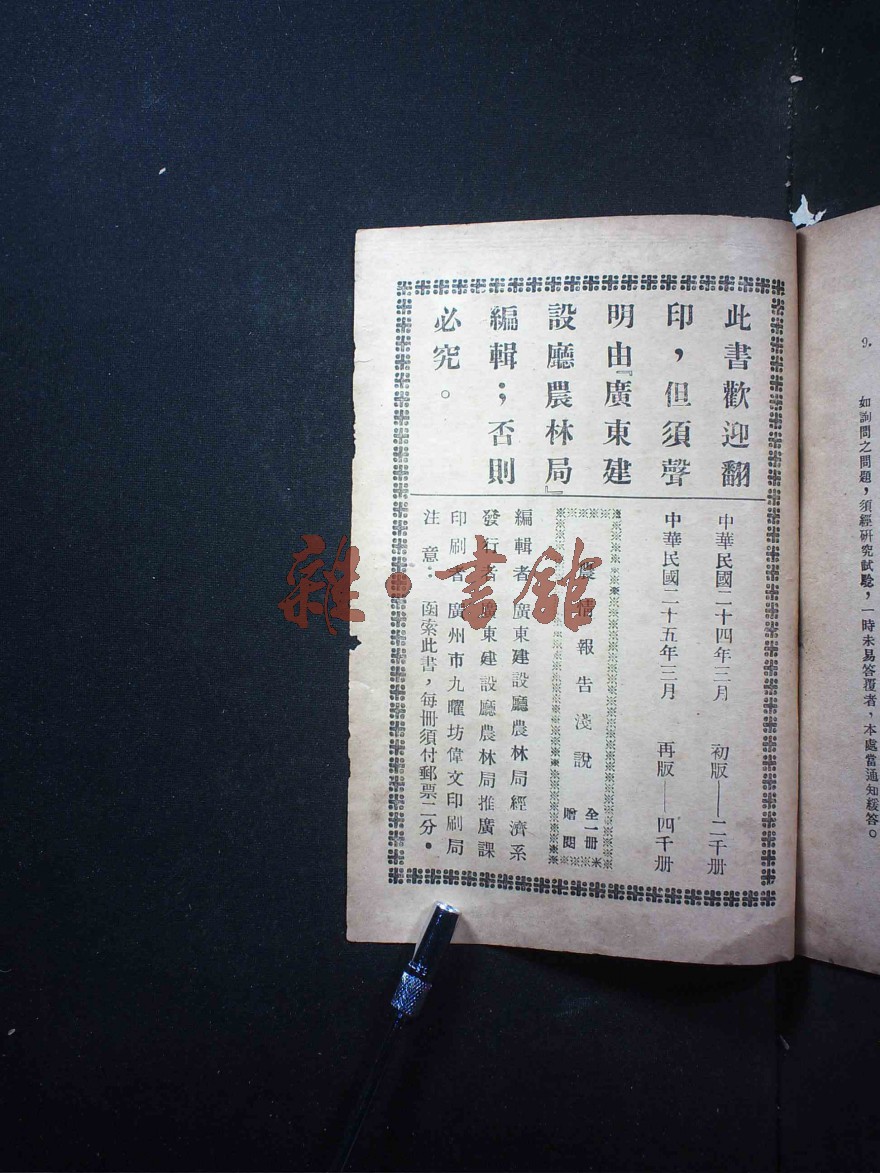 9.
如詢問之問題，須經研究試驗，一時未易答覆者，本處當通知緩答。
此書歡迎翻
印，但須聲
明由『廣東建
設廳農林局』
編輯；否則
必究。
中華民國二十四年三月　初版——二千册
中華民國二十五年三月　再版——四千册
農情報告淺說
全一冊
贈閱
編輯者　廣東建設廳農林局經濟系
發行者　廣東建設廳農林局推廣課
印刷者　廣州市九曜坊偉文印刷局
注意：函索此書，每冊須付郵票二分。
雜·書館